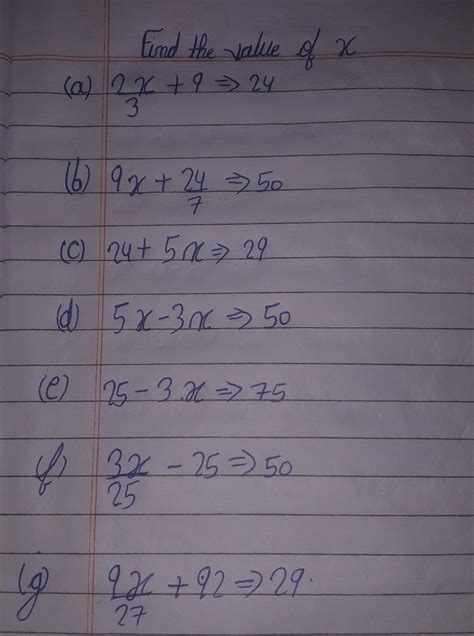 Find the value of x
(a) 2x/3 + 9 ⇒ 24
(b) 9x + 24/7 ⇒ 50
(c) 24 + 5x ⇒ 29
(d) 5x - 3x ⇒ 50
(e) 25 - 3.x ⇒ 75
(f) 3x/25 - 25 ⇒ 50
(g) 9x/27 + 92 ⇒ 29.